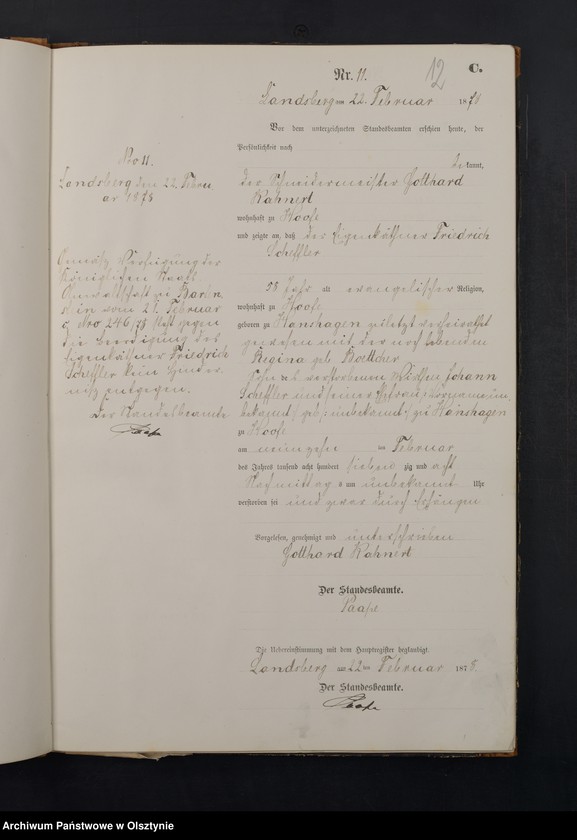 Nr. 11.
12
C.
Landsberg am 22. Februar 1878
Vor dem unterzeichneten Standesbeamten erschien heute, der
Persönlichkeit nach
bekannt,
der Schneidermeister Gotthard
Kahnert
wohnhaft zu Hoofe
und zeigte an, daß der Eigenkäthner Friedrich
Scheffler
58 Jahr alt evangelischer Religion,
wohnhaft zu Hoofe
geboren zu Hanshagen zuletzt verheirathet
gewesen mit der noch lebenden
Regina geb Boettcher
Sohn des verstorbenen Wirthen Johann
Scheffler und seiner Ehefrau, Vorname un
bekannt, geb. unbekannt zu Hanshagen
zu Hoofe
am neunzehn ten Februar
des Jahres tausend acht hundert siebenzig und acht
Nachmittags um unbekannt Uhr
verstorben sei und zwar durch Erhängen
Vorgelesen, genehmigt und unterschrieben
Gotthard Kahnert
Der Standesbeamte.
Paape
Die Uebereinstimmung mit dem Hauptregister beglaubigt.
Landsberg am 22 ten Februar 1878.
Der Standesbeamte.
Paape
No 11.
Landsberg den 22. Febru
ar 1878
Gemäß Verfügung der
Königlichen Staats
Anwaltschaft zu Barten
stein vom 21. Februar
c. Nro 246/78 steht gegen
die Beerdigung des
Eigenkäthner Friedrich
Scheffler kein Hinder
niß entgegen.
Der Standesbeamte
Paape
Archiwum Państwowe w Olsztynie